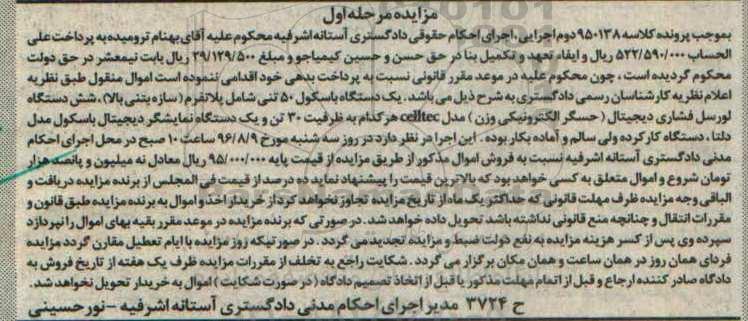 مزایده مرحله اول
بموجب پرونده کلاسه ۹۵۰۱۳۸ دوم اجرایی ، اجرای احکام حقوقی دادگستری آستانه اشرفیه محکوم علیه آقای بهنام ترومیده به پرداخت علی
الحساب ۵۲۲/۵۹۰/۰۰۰ ریال و ایفاء تعهد و تکمیل بنا در حق حسن و حسین کیمیاجو و مبلغ ۲۹/۱۲۹/۵۰۰ ریال بابت نیمعشر در حق دولت
محکوم گردیده است ، چون محکوم علیه در موعد مقرر قانونی نسبت به پرداخت بدهی خود اقدامی ننموده است اموال منقول طبق نظریه
اعلام نظریه کارشناسان رسمی دادگستری به شرح ذیل می باشد . یک دستگاه باسکول ۵۰ تنی شامل پلاتفرم ( سازه بتنی بالا ) ، شش دستگاه
لورسل فشاری دیجیتال ( حسگر الکترونیکی وزن ) مدل celltec هر کدام به ظرفیت ۳۰ تن و یک دستگاه نمایشگر دیجیتال باسکول مدل
دلتا ، دستگاه کارکرده ولی سالم و آماده بکار بوده . این اجرا در نظر دارد در روز سه شنبه مورخ ۹۶/۸/۹ ساعت ۱۰ صبح در محل اجرای احکام
مدنی دادگستری آستانه اشرفیه نسبت به فروش اموال مذکور از طریق مزایده از قیمت پایه ۹۵/۰۰۰/۰۰۰ ریال معادل نه میلیون و پانصد هزار
تومان شروع و اموال متعلق به کسی خواهد بود که بالاترین قیمت را پیشنهاد نماید ده درصد از قیمت فی المجلس از برنده مزایده دریافت و
الباقی وجه مزایده ظرف مهلت قانونی که حداکثر یک ماه از تاریخ مزایده تجاوز نخواهد کرد از خریدار اخذ و اموال به برنده مزایده طبق قانون و
مقررات انتقال و چنانچه منع قانونی نداشته باشد تحویل داده خواهد شد . در صورتی که برنده مزایده در موعد مقرر بقیه بهای اموال را نپردازد
سپرده وی پس از کسر هزینه مزایده به نفع دولت ضبط و مزایده تجدید می گردد . در صورتیکه روز مزایده با ایام تعطیل مقارن گردد مزایده
فردای همان روز در همان ساعت و همان مکان برگزار می گردد . شکایت راجع به تخلف از مقررات مزایده ظرف یک هفته از تاریخ فروش به
دادگاه صادر کننده ارجاع و قبل از اتمام مهلت مذکور یا قبل از اتخاذ تصمیم دادگاه ( در صورت شکایت ) اموال به خریدار تحویل نخواهد شد .
ح ۳۷۲۴ مدیر اجرای احکام مدنی دادگستری آستانه اشرفیه – نورحسینی